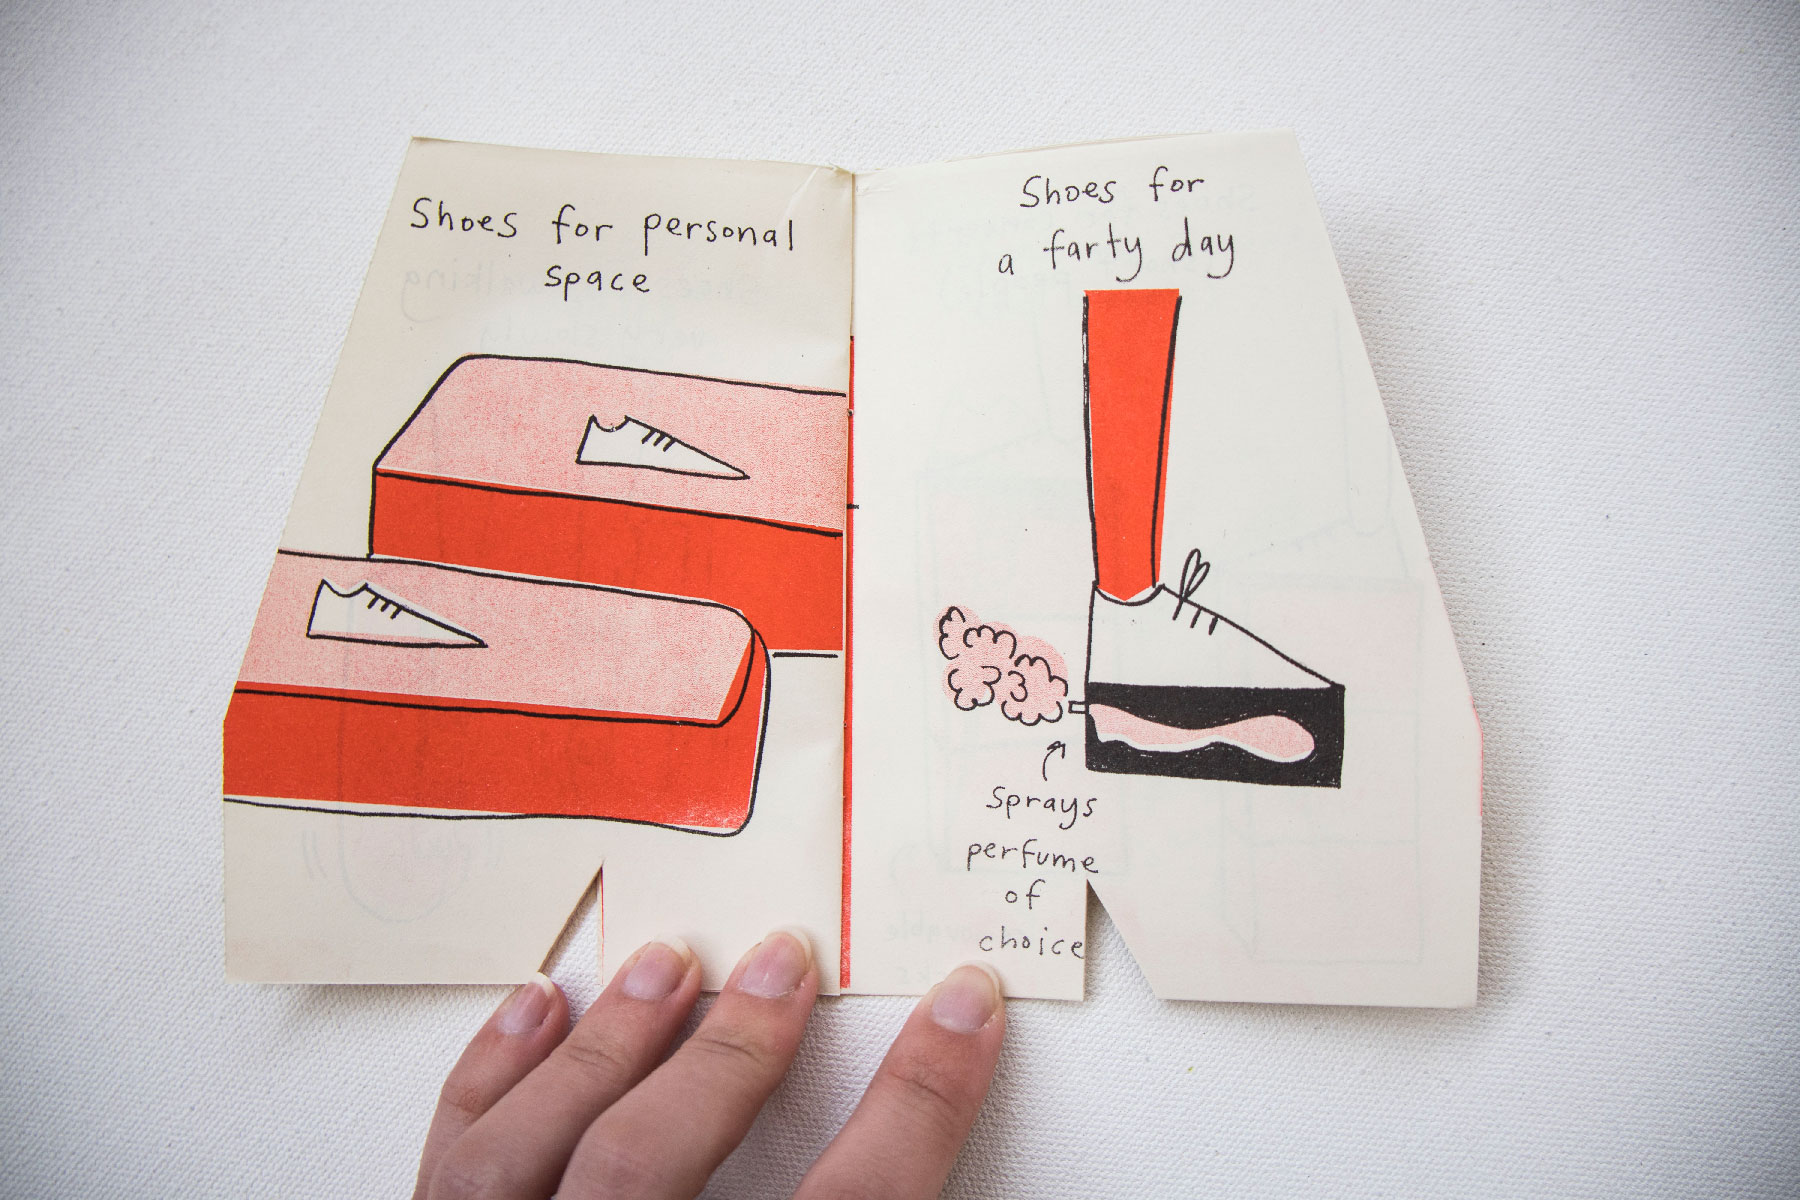 Shoes for personal
space
Shoes for
a farty day
Sprays
perfume
of
choice